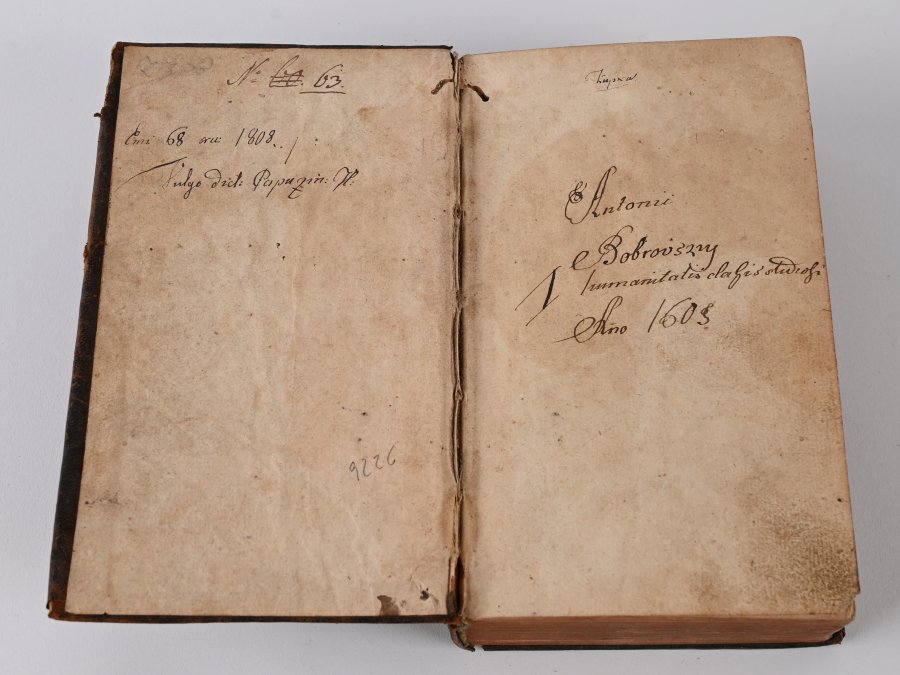 No 63.
Emi 68 xr: 1808.
Vulgo dict: Papazin:
9226
Antonii
Bobrovszny
humanitatis classis studiosi
Ano 1608